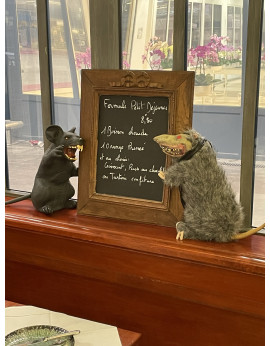 Formule Petit Déjeuner
8,50
1 Boisson chaude
1 Orange Pressée
et au choix:
Croissant, Pain au chocolat
ou Tartine confiture